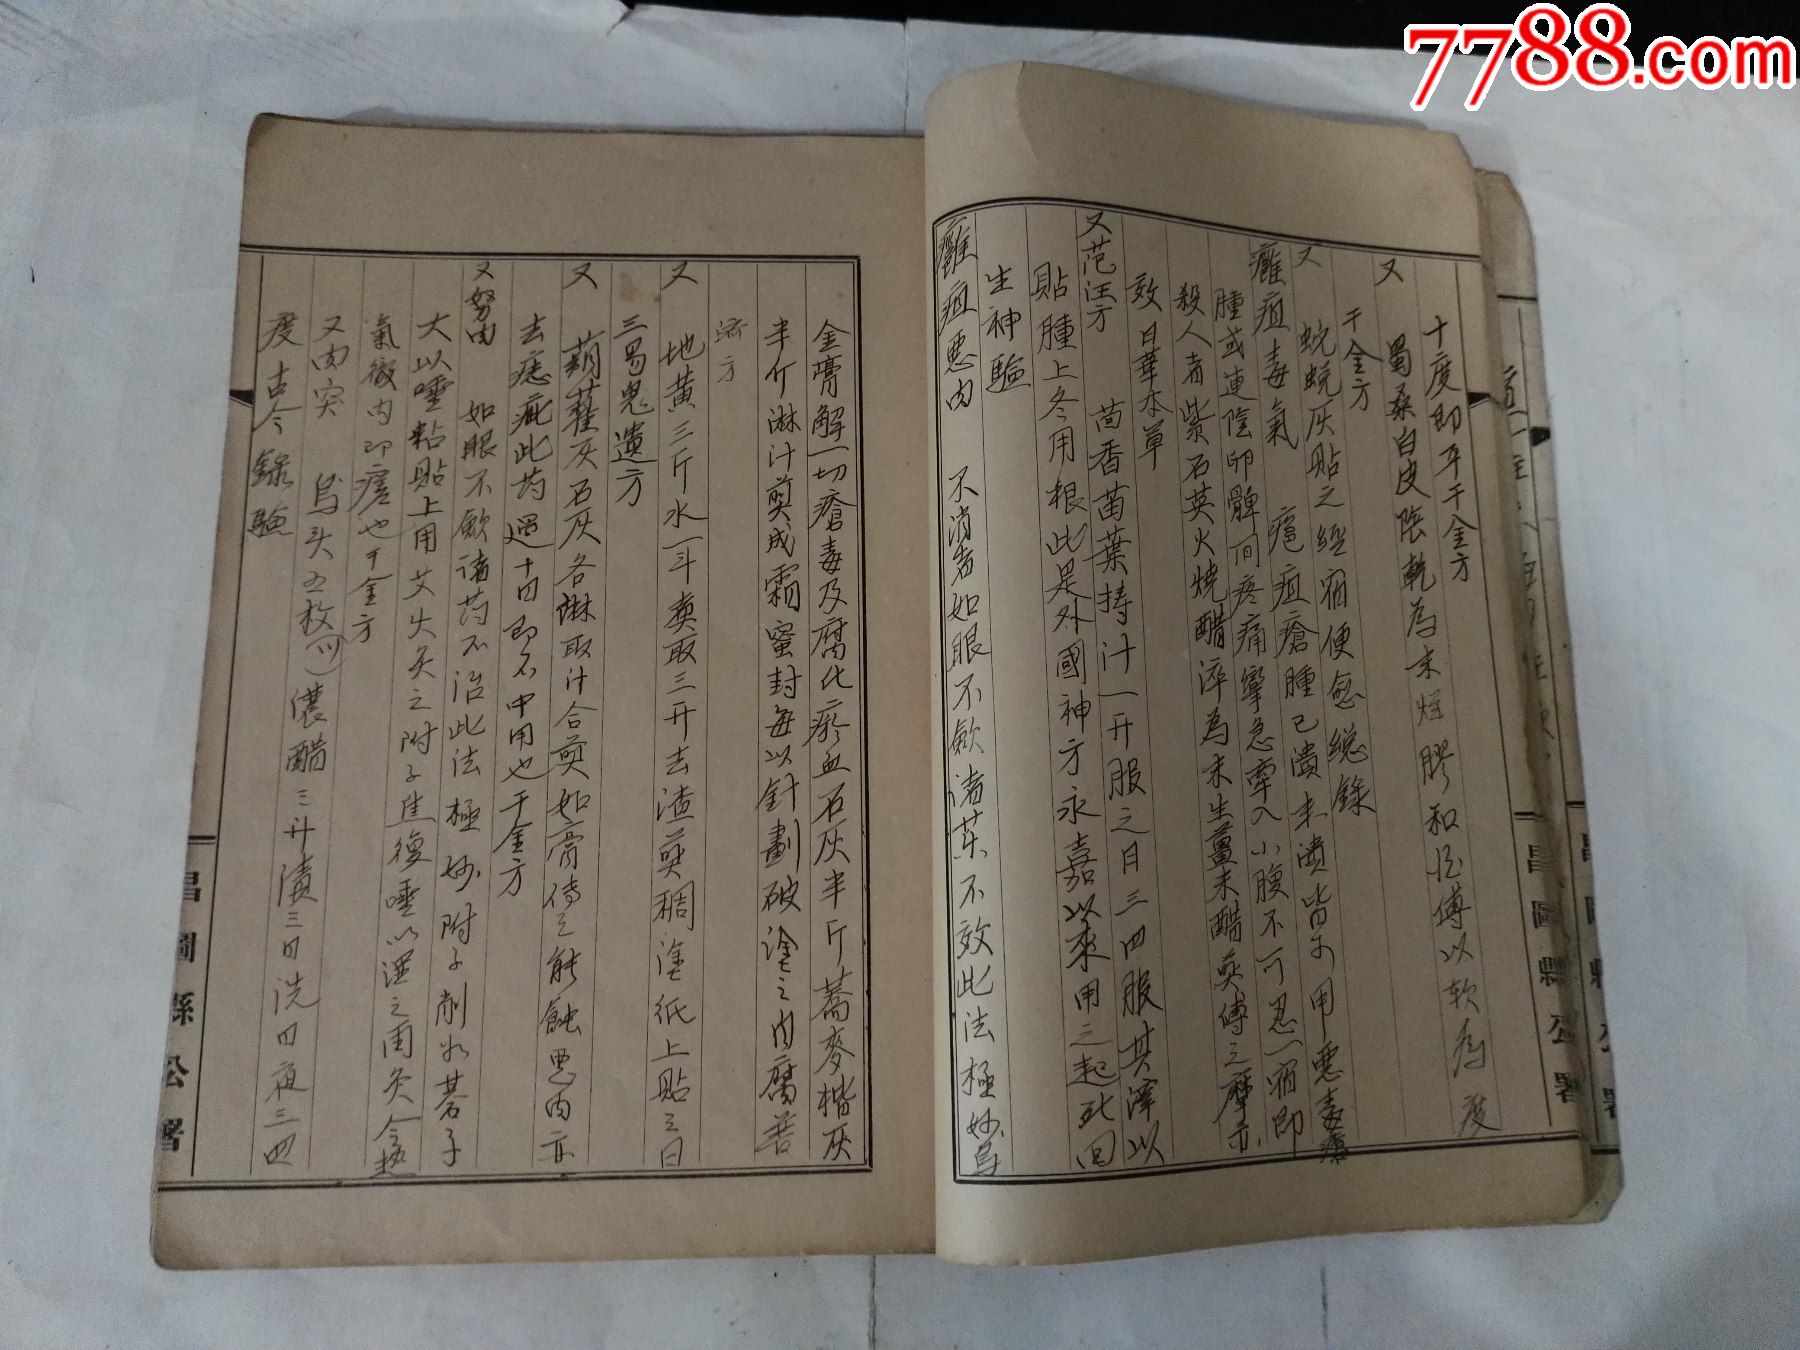 7788.com
十度即平千金方
又 蜀桑白皮陰乾為末烊膠和酒傅以软為度
千金方
又 蛻蛻灰貼之經宿便愈總錄
癰疽毒氣 瘡疽瘡腫已潰未潰皆可用惡毒瘡
腫或連陰卵髀间疼痛攣急牽入小腹不可忍一宿即
殺人者紫石英火燒醋淬為末生薑末醋煎傅之摩亦
效日華本草
又范汪方 茴香苗葉擣汁一升服之日三四服其滓以
貼腫上冬用根此是外國神方永嘉以來用之起死回
生神驗
癰疽惡肉 不消者如眼不歛诸药不效此法極妙烏
金膏解一切瘡毒及腐化瘀血石灰半斤蕎麥楷灰
半斤淋汁煎成霜蜜封每以針劃破塗之肉腐善
济方
又 地黄三斤水一斗煮取三升去渣煎稠塗紙上貼之日
三易鬼遺方
又 蒴藋灰石灰各淋取汁合煎如膏傅之能蝕惡肉亦
去痣疵此药過十日即不中用也千金方
又努肉 如眼不歛诸药不治此法極妙附子削如碁子
大以唾粘貼上用艾火炙之附子焦復唾以濕之再灸令热
氣徹内即瘥也千金方
又肉突 烏头五枚(四)濃醋三升漬三日洗日夜三四
度古今錄驗
昌圖縣公署
昌圖縣公署
昌圖縣公署